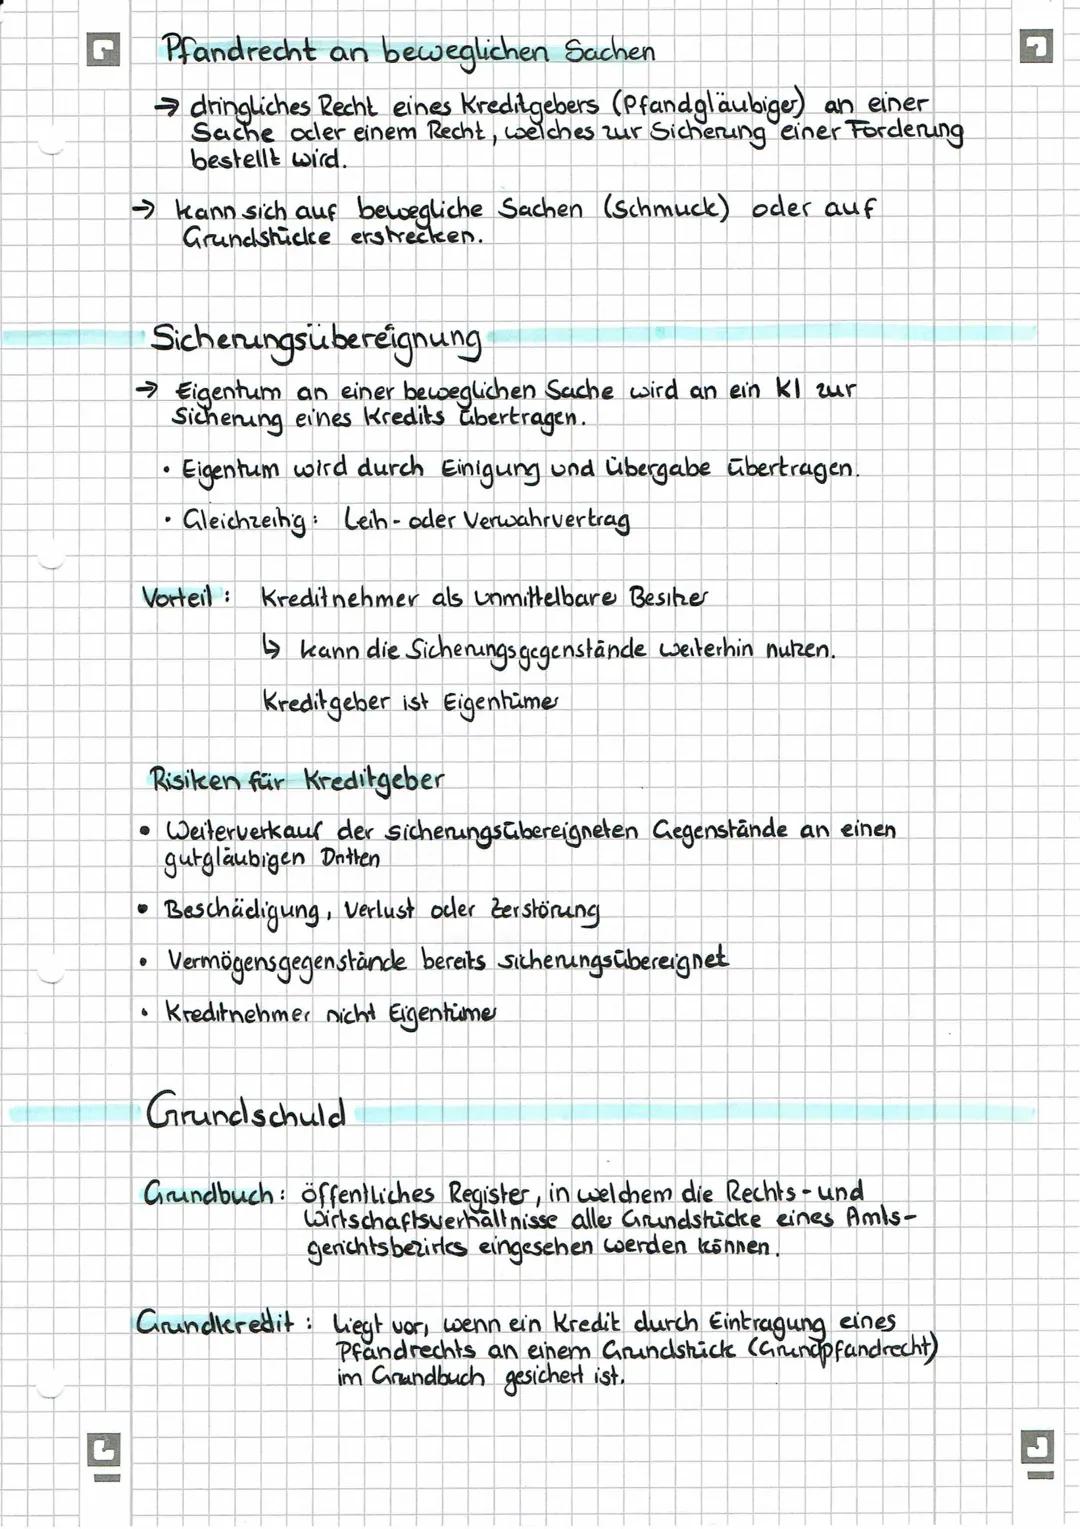 Pfandrecht an beweglichen Sachen
→ dringliches Recht eines Kreditgebers (Pfandgläubiger) an einer
Sache oder einem Recht, welches zur Sicherung einer Forderung
bestellt wird.
→ kann sich auf bewegliche Sachen (Schmuck) oder auf
Grundstücke erstrecken.
Sicherungsübereignung
→ Eigentum an einer beweglichen Sache wird an ein KI zur
Sicherung eines Kredits übertragen.
• Eigentum wird durch Einigung und Übergabe übertragen.
• Gleichzeitig: Leih- oder Verwahrvertrag
Vorteil: Kreditnehmer als unmittelbare Besitzer
↳ kann die Sicherungsgegenstände weiterhin nutzen.
Kreditgeber ist Eigentümer
Risiken für Kreditgeber
• Weiterverkauf der sicherungsübereigneten Gegenstände an einen
gutgläubigen Dritten
• Beschädigung, Verlust oder Zerstörung
• Vermögensgegenstände bereits sicherungsübereignet
• Kreditnehmer nicht Eigentümer
Grundschuld
Grundbuch: öffentliches Register, in welchem die Rechts- und
Wirtschaftsverhältnisse aller Grundstücke eines Amts-
gerichtsbezirks eingesehen werden können.
Grundkredit: Liegt vor, wenn ein Kredit durch Eintragung eines
Pfandrechts an einem Grundstück (Grundpfandrecht)
im Grundbuch gesichert ist.